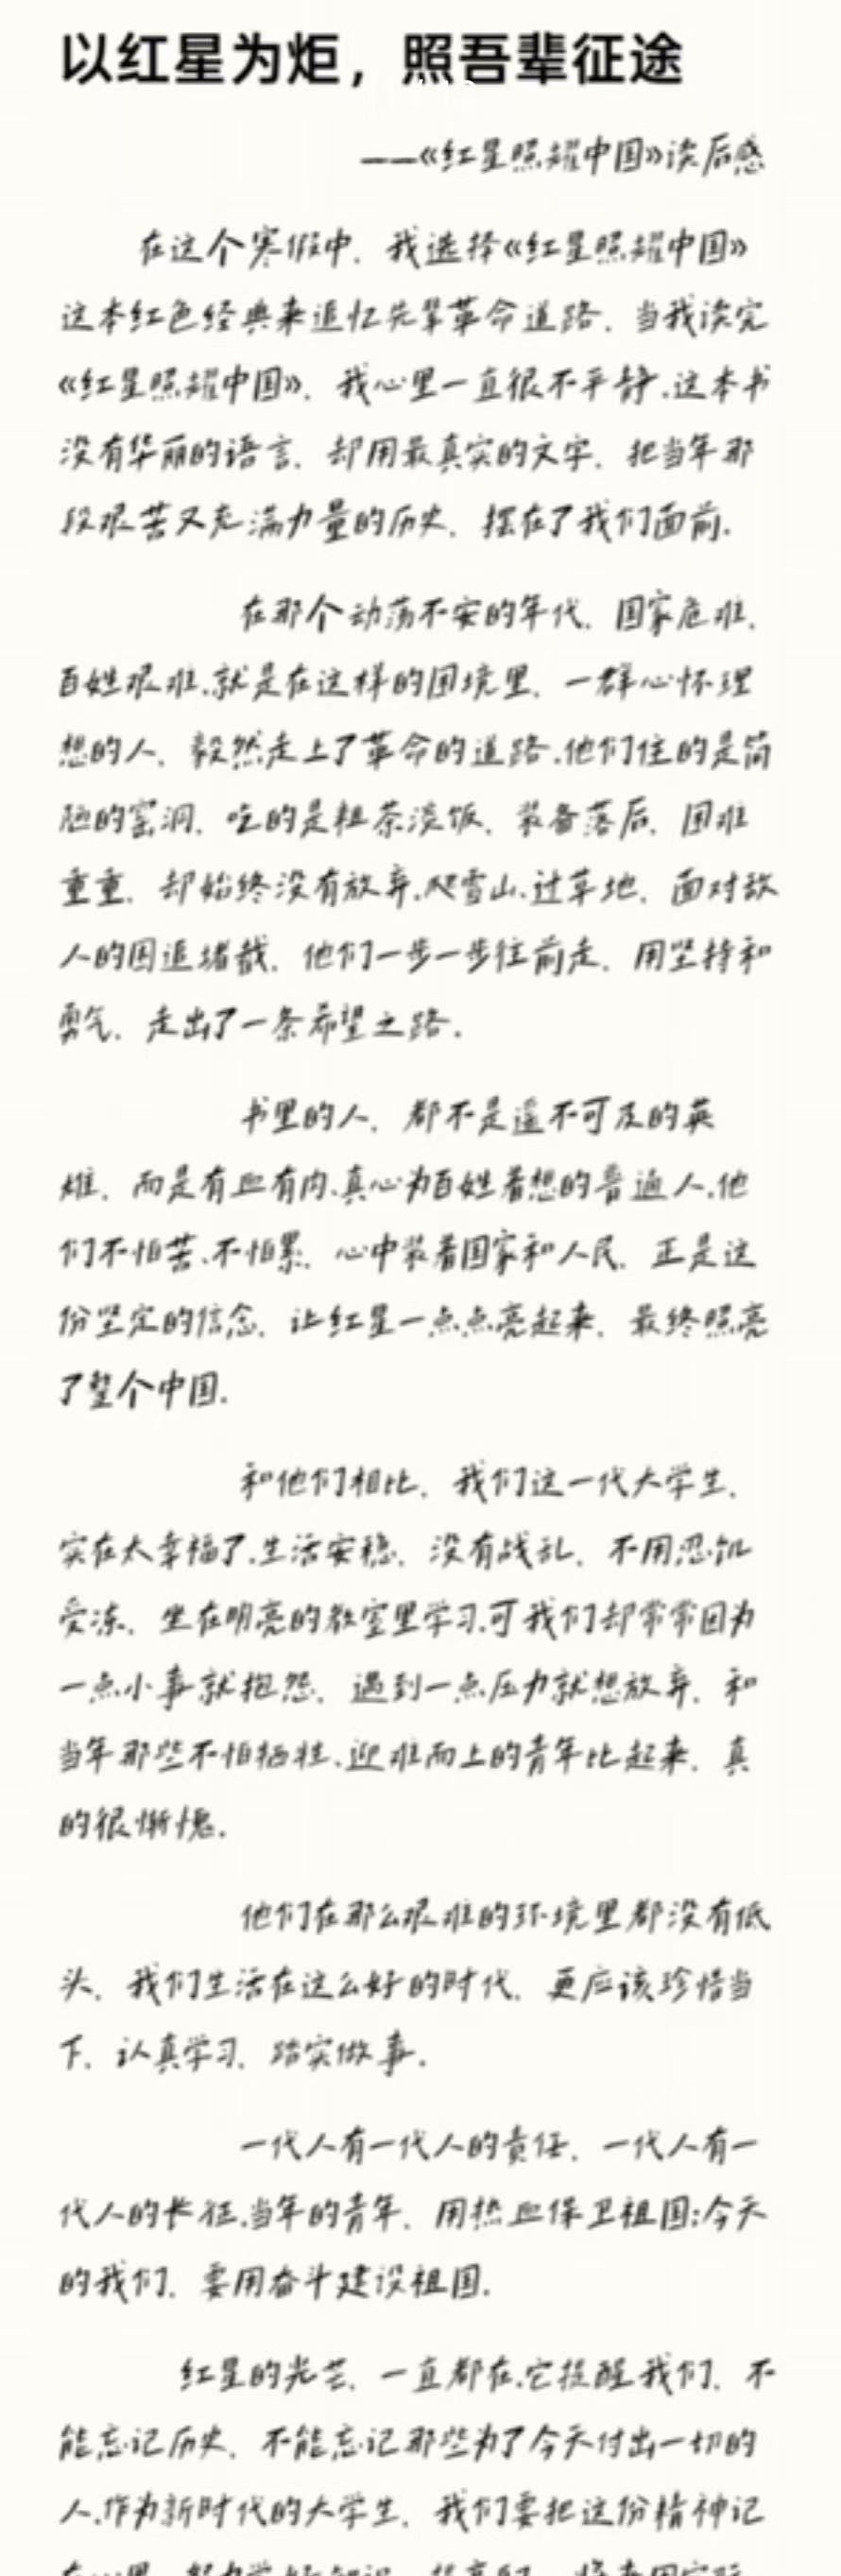 以红星为炬，照吾辈征途
——《红星照耀中国》读后感
在这个寒假中，我选择《红星照耀中国》
这本红色经典来追忆先辈革命道路，当我读完
《红星照耀中国》，我心里一直很不平静。这本书
没有华丽的语言，却用最真实的文字，把当年那
段艰苦又充满力量的历史，摆在了我们面前。
在那个动荡不安的年代，国家危难，
百姓艰难。就是在这样的困境里，一群心怀理
想的人，毅然走上了革命的道路。他们住的是简
陋的窑洞，吃的是粗茶淡饭，装备落后，困难
重重，却始终没有放弃。爬雪山、过草地，面对敌
人的围追堵截，他们一步一步往前走，用坚持和
勇气，走出了一条希望之路。
书里的人，都不是遥不可及的英
雄，而是有血有肉、真心为百姓着想的普通人。他
们不怕苦、不怕累，心中装着国家和人民，正是这
份坚定的信念，让红星一点点亮起来，最终照亮
了整个中国。
和他们相比，我们这一代大学生，
实在太幸福了。生活安稳，没有战乱，不用忍饥
受冻，坐在明亮的教室里学习。可我们却常常因为
一点小事就抱怨，遇到一点压力就想放弃，和
当年那些不怕牺牲、迎难而上的青年比起来，真
的很惭愧。
他们在那么艰难的环境里都没有低
头，我们生活在这么好的时代，更应该珍惜当
下，认真学习，踏实做事。
一代人有一代人的责任，一代人有一
代人的长征。当年的青年，用热血保卫祖国；今天
的我们，要用奋斗建设祖国。
红星的光芒，一直都在。它提醒我们，不
能忘记历史，不能忘记那些为了今天付出一切的
人。作为新时代的大学生，我们要把这份精神记